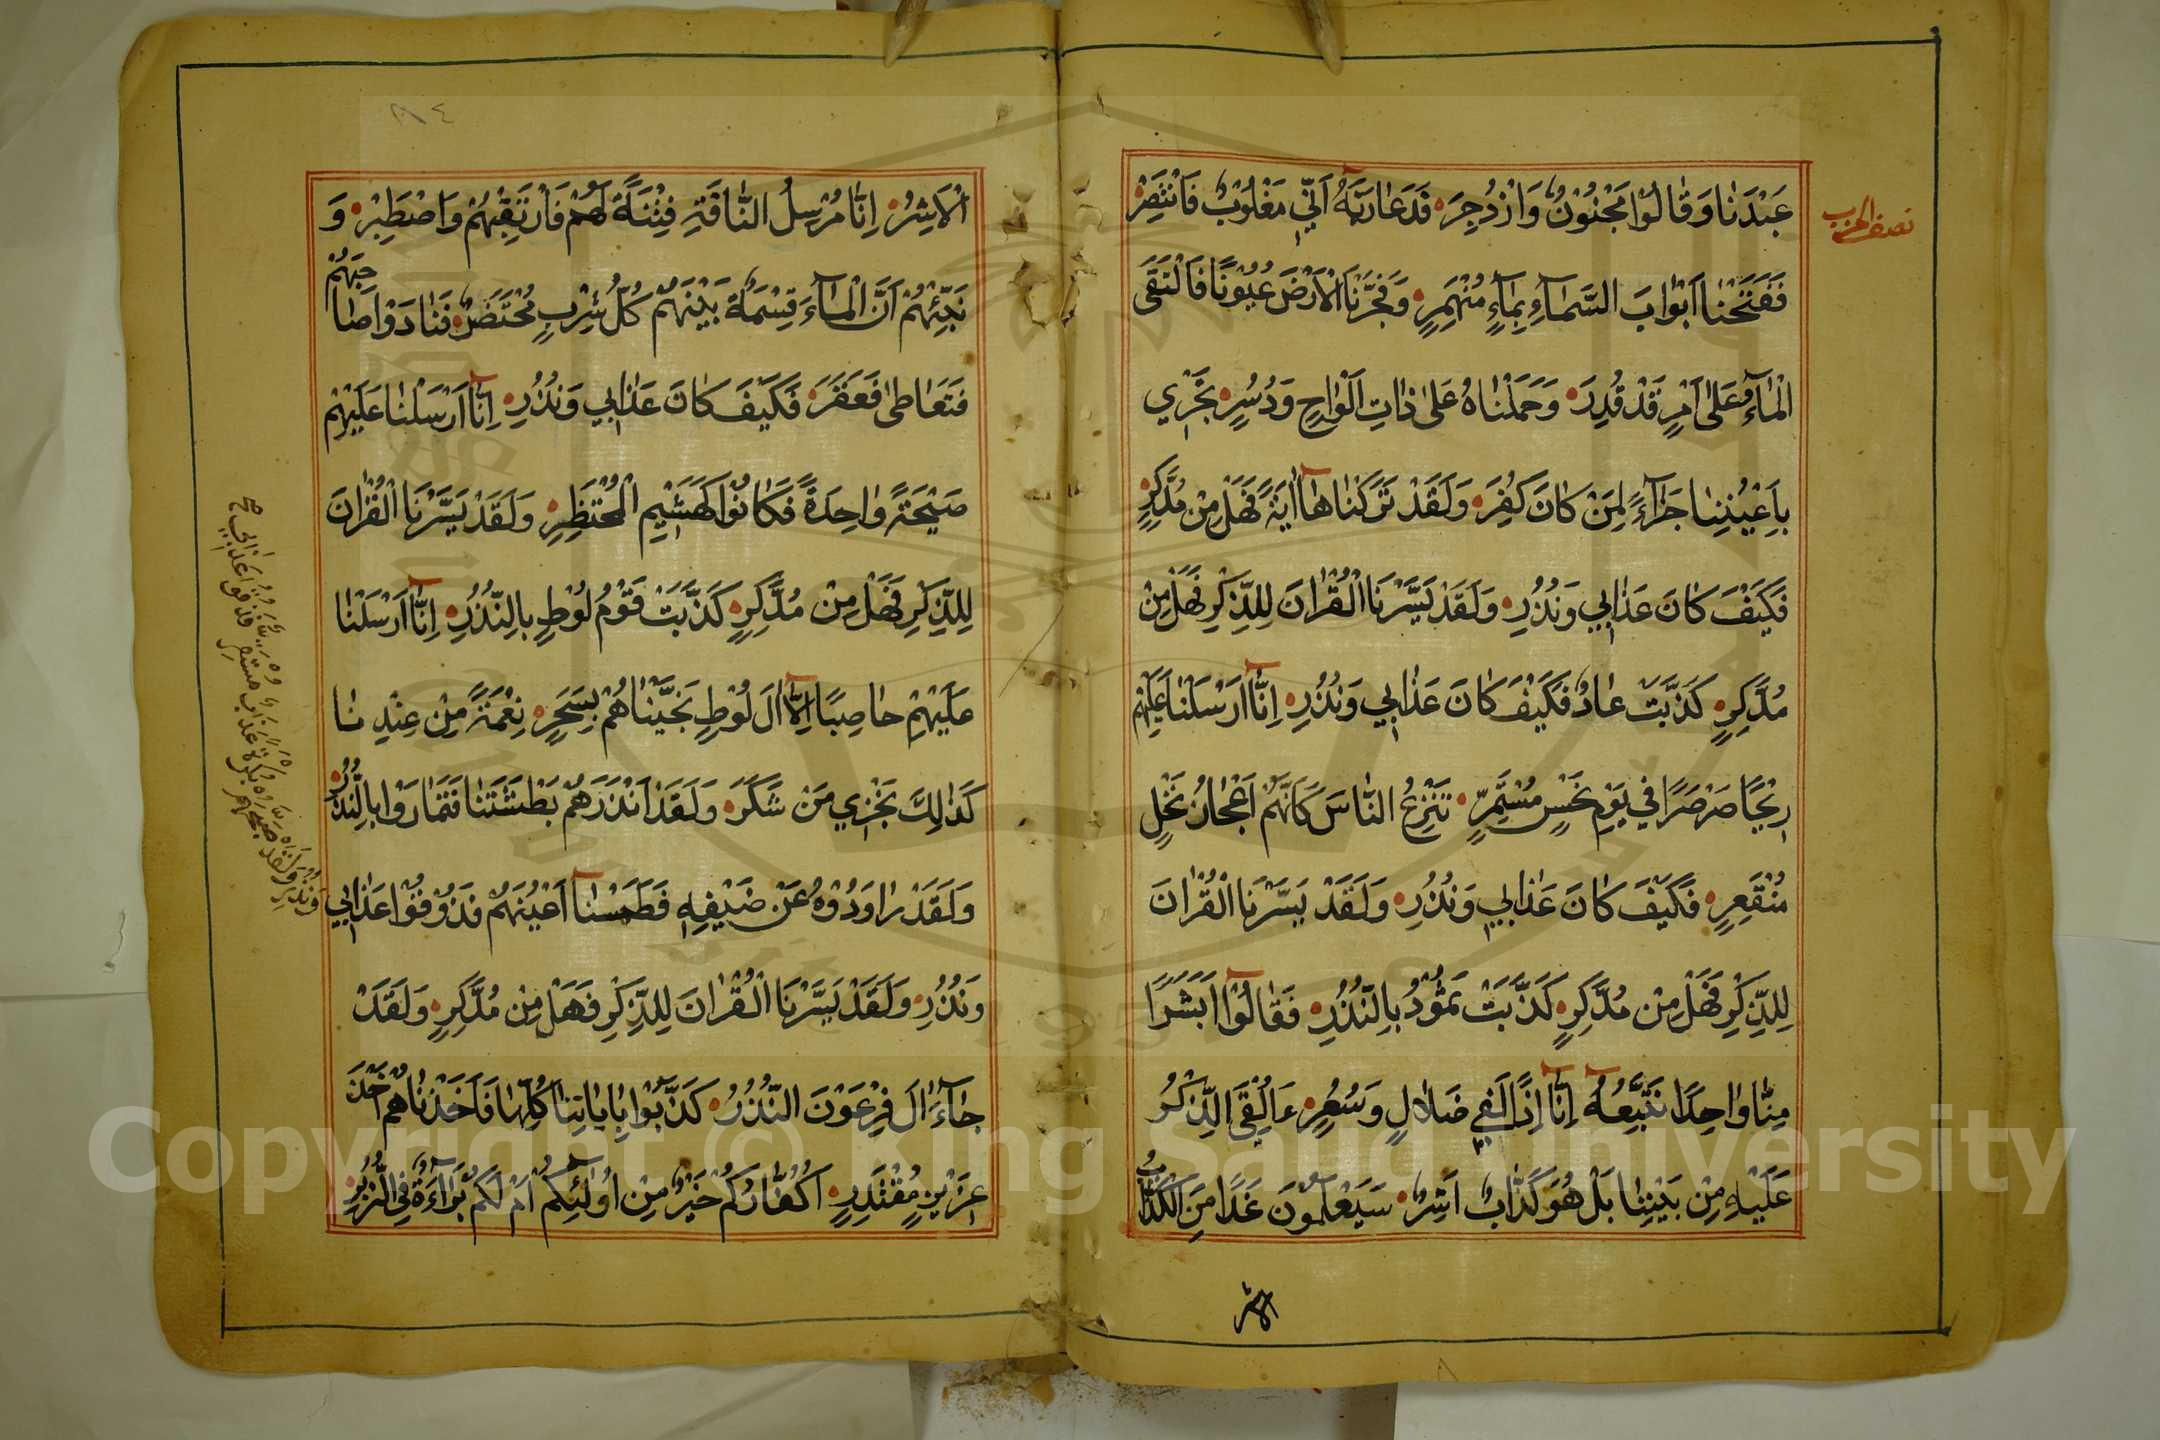 نصف الحزب
عَبْدَنَا وَقَالُوْا مَجْنُوْنٌ وَازْدُجِرَ فَدَعَا رَبَّهُ اَنِّي مَغْلُوْبٌ فَانْتَصِرْ
فَفَتَحْنَا اَبْوَابَ السَّمَآءِ بِمَآءٍ مُنْهَمِرٍ وَفَجَّرْنَا الْاَرْضَ عُيُوْنًا فَالْتَقَى
الْمَآءُ عَلٰى اَمْرٍ قَدْ قُدِرَ وَحَمَلْنَاهُ عَلٰى ذَاتِ اَلْوَاحٍ وَدُسُرٍ تَجْرِي
بِاَعْيُنِنَا جَزَآءً لِمَنْ كَانَ كُفِرَ وَلَقَدْ تَرَكْنَاهَآ اٰيَةً فَهَلْ مِنْ مُدَّكِرٍ
فَكَيْفَ كَانَ عَذَابِي وَنُذُرِ وَلَقَدْ يَسَّرْنَا الْقُرْاٰنَ لِلذِّكْرِ فَهَلْ مِنْ
مُدَّكِرٍ كَذَّبَتْ عَادٌ فَكَيْفَ كَانَ عَذَابِي وَنُذُرِ اِنَّآ اَرْسَلْنَا عَلَيْهِمْ
رِيْحًا صَرْصَرًا فِي يَوْمِ نَحْسٍ مُسْتَمِرٍّ تَنْزِعُ النَّاسَ كَاَنَّهُمْ اَعْجَازُ نَخْلٍ
مُنْقَعِرٍ فَكَيْفَ كَانَ عَذَابِي وَنُذُرِ وَلَقَدْ يَسَّرْنَا الْقُرْاٰنَ
لِلذِّكْرِ فَهَلْ مِنْ مُدَّكِرٍ كَذَّبَتْ ثَمُوْدُ بِالنُّذُرِ فَقَالُوْا اَبَشَرًا
مِنَّا وَاحِدًا نَتَّبِعُهُٓ اِنَّآ اِذًا لَفِي ضَلَالٍ وَسُعُرٍ ءَاُلْقِيَ الذِّكْرُ
عَلَيْهِ مِنْ بَيْنِنَا بَلْ هُوَ كَذَّابٌ اَشِرٌ سَيَعْلَمُوْنَ غَدًا مَنِ الْكَذَّابُ
الاشر
٣١٤
الْاَشِرُ اِنَّا مُرْسِلُ النَّاقَةِ فِتْنَةً لَهُمْ فَارْتَقِبْهُمْ وَاصْطَبِرْ وَ
نَبِّئْهُمْ اَنَّ الْمَآءَ قِسْمَةٌ بَيْنَهُمْ كُلُّ شِرْبٍ مُحْتَضَرٌ فَنَادَوْا صَاحِبَهُمْ
فَتَعَاطٰى فَعَقَرَ فَكَيْفَ كَانَ عَذَابِي وَنُذُرِ اِنَّآ اَرْسَلْنَا عَلَيْهِمْ
صَيْحَةً وَاحِدَةً فَكَانُوْا كَهَشِيْمِ الْمُحْتَظِرِ وَلَقَدْ يَسَّرْنَا الْقُرْاٰنَ
لِلذِّكْرِ فَهَلْ مِنْ مُدَّكِرٍ كَذَّبَتْ قَوْمُ لُوْطٍ بِالنُّذُرِ اِنَّآ اَرْسَلْنَا
عَلَيْهِمْ حَاصِبًا اِلَّآ اٰلَ لُوْطٍ نَجَّيْنَاهُمْ بِسَحَرٍ نِعْمَةً مِنْ عِنْدِنَا
كَذَالِكَ نَجْزِي مَنْ شَكَرَ وَلَقَدْ اَنْذَرَهُمْ بَطْشَتَنَا فَتَمَارَوْا بِالنُّذُرِ
وَلَقَدْ رَاوَدُوْهُ عَنْ ضَيْفِهِ فَطَمَسْنَآ اَعْيُنَهُمْ فَذُوْقُوْا عَذَابِي
وَنُذُرِ وَلَقَدْ يَسَّرْنَا الْقُرْاٰنَ لِلذِّكْرِ فَهَلْ مِنْ مُدَّكِرٍ وَلَقَدْ
جَآءَ اٰلَ فِرْعَوْنَ النُّذُرُ كَذَّبُوْا بِاٰيَاتِنَا كُلِّهَا فَاَخَذْنَاهُمْ اَخْذَ
عَزِيْزٍ مُقْتَدِرٍ اَكُفَّارُكُمْ خَيْرٌ مِنْ اُولٰٓئِكُمْ اَمْ لَكُمْ بَرَآءَةٌ فِي الزُّبُرِ
وَنُذُرِ وَلَقَدْ صَبَّحَهُمْ بُكْرَةً عَذَابٌ مُسْتَقِرٌّ فَذُوْقُوْا عَذَابِي صح
Copyright © King Saud University
1957